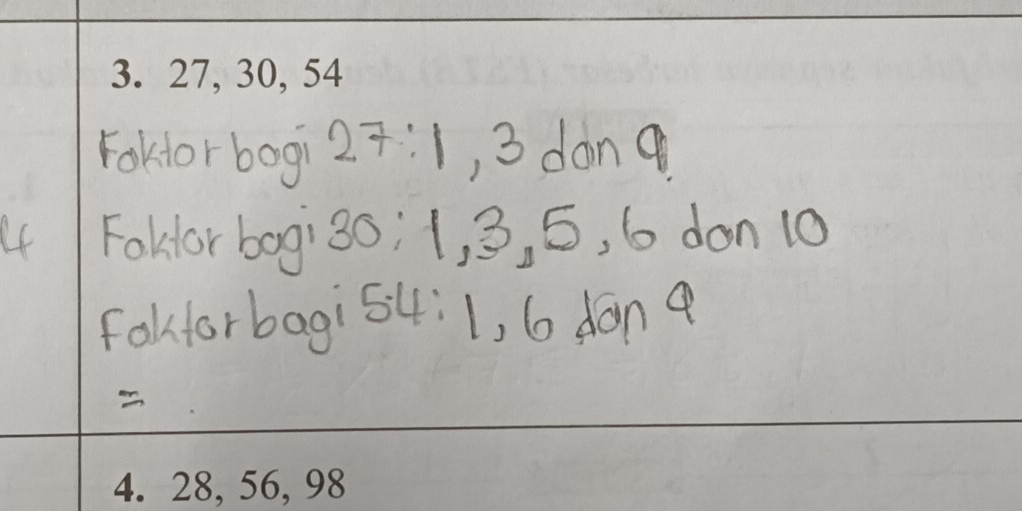 3. 27, 30, 54
Faktor bagi 27 : 1 , 3 dan 9.
Faktor bagi 30 : 1,3,5,6 dan 10
Faktor bagi 54 : 1, 6 dan 9
=
4. 28, 56, 98